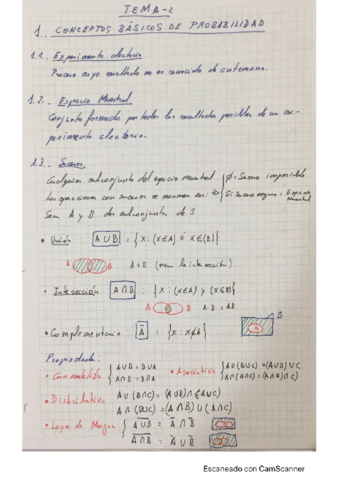 TEMA-2
1. CONCEPTOS BÁSICOS DE PROBABILIDAD
1.1. Experimento aleatorio
Proceso cuyo resultado no es conocido de antemano.
1.2. Espacio Muestral
Conjunto formado por todos los resultados posibles de un ex-
perimento aleatorio.
1.3. Suceso
Cualquier subconjunto del espacio muestral. { ∅ = Suceso imposible
Las operaciones con sucesos se resumen en: S = Suceso seguro = Espacio Muestral
Sean A y B dos subconjuntos de S
• Unión A∪B = { X : (X∈A) ó X∈(B)}
A B A+B (menos la intersección)
• Intersección A∩B : {X : (X∈A) y (X∈B)}
A B A·B = AB
• Complementario Ā = {X : X∉A} A S
Propiedades:
• Conmutativa { A∪B = B∪A
A∩B = B∩A
• Asociativa { A∪(B∪C) = (A∪B)∪C
A∩(B∩C) = (A∩B)∩C
• Distributiva A∪(B∩C) = (A∪B)∩(A∪C)
A∩(B∪C) = (A∩B)∪(A∩C)
• Leyes de Morgan
Escaneado con CamScanner